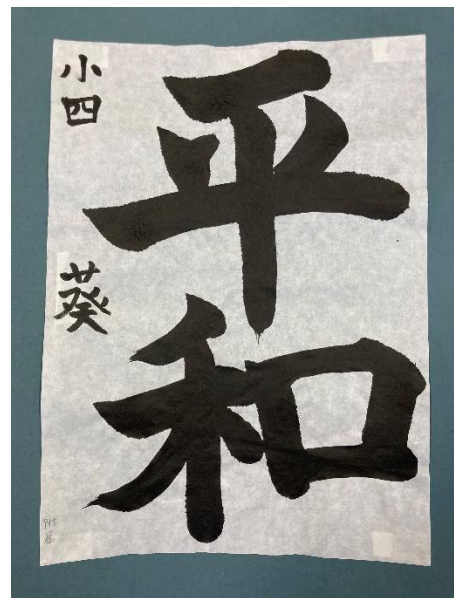 平和
小四 葵